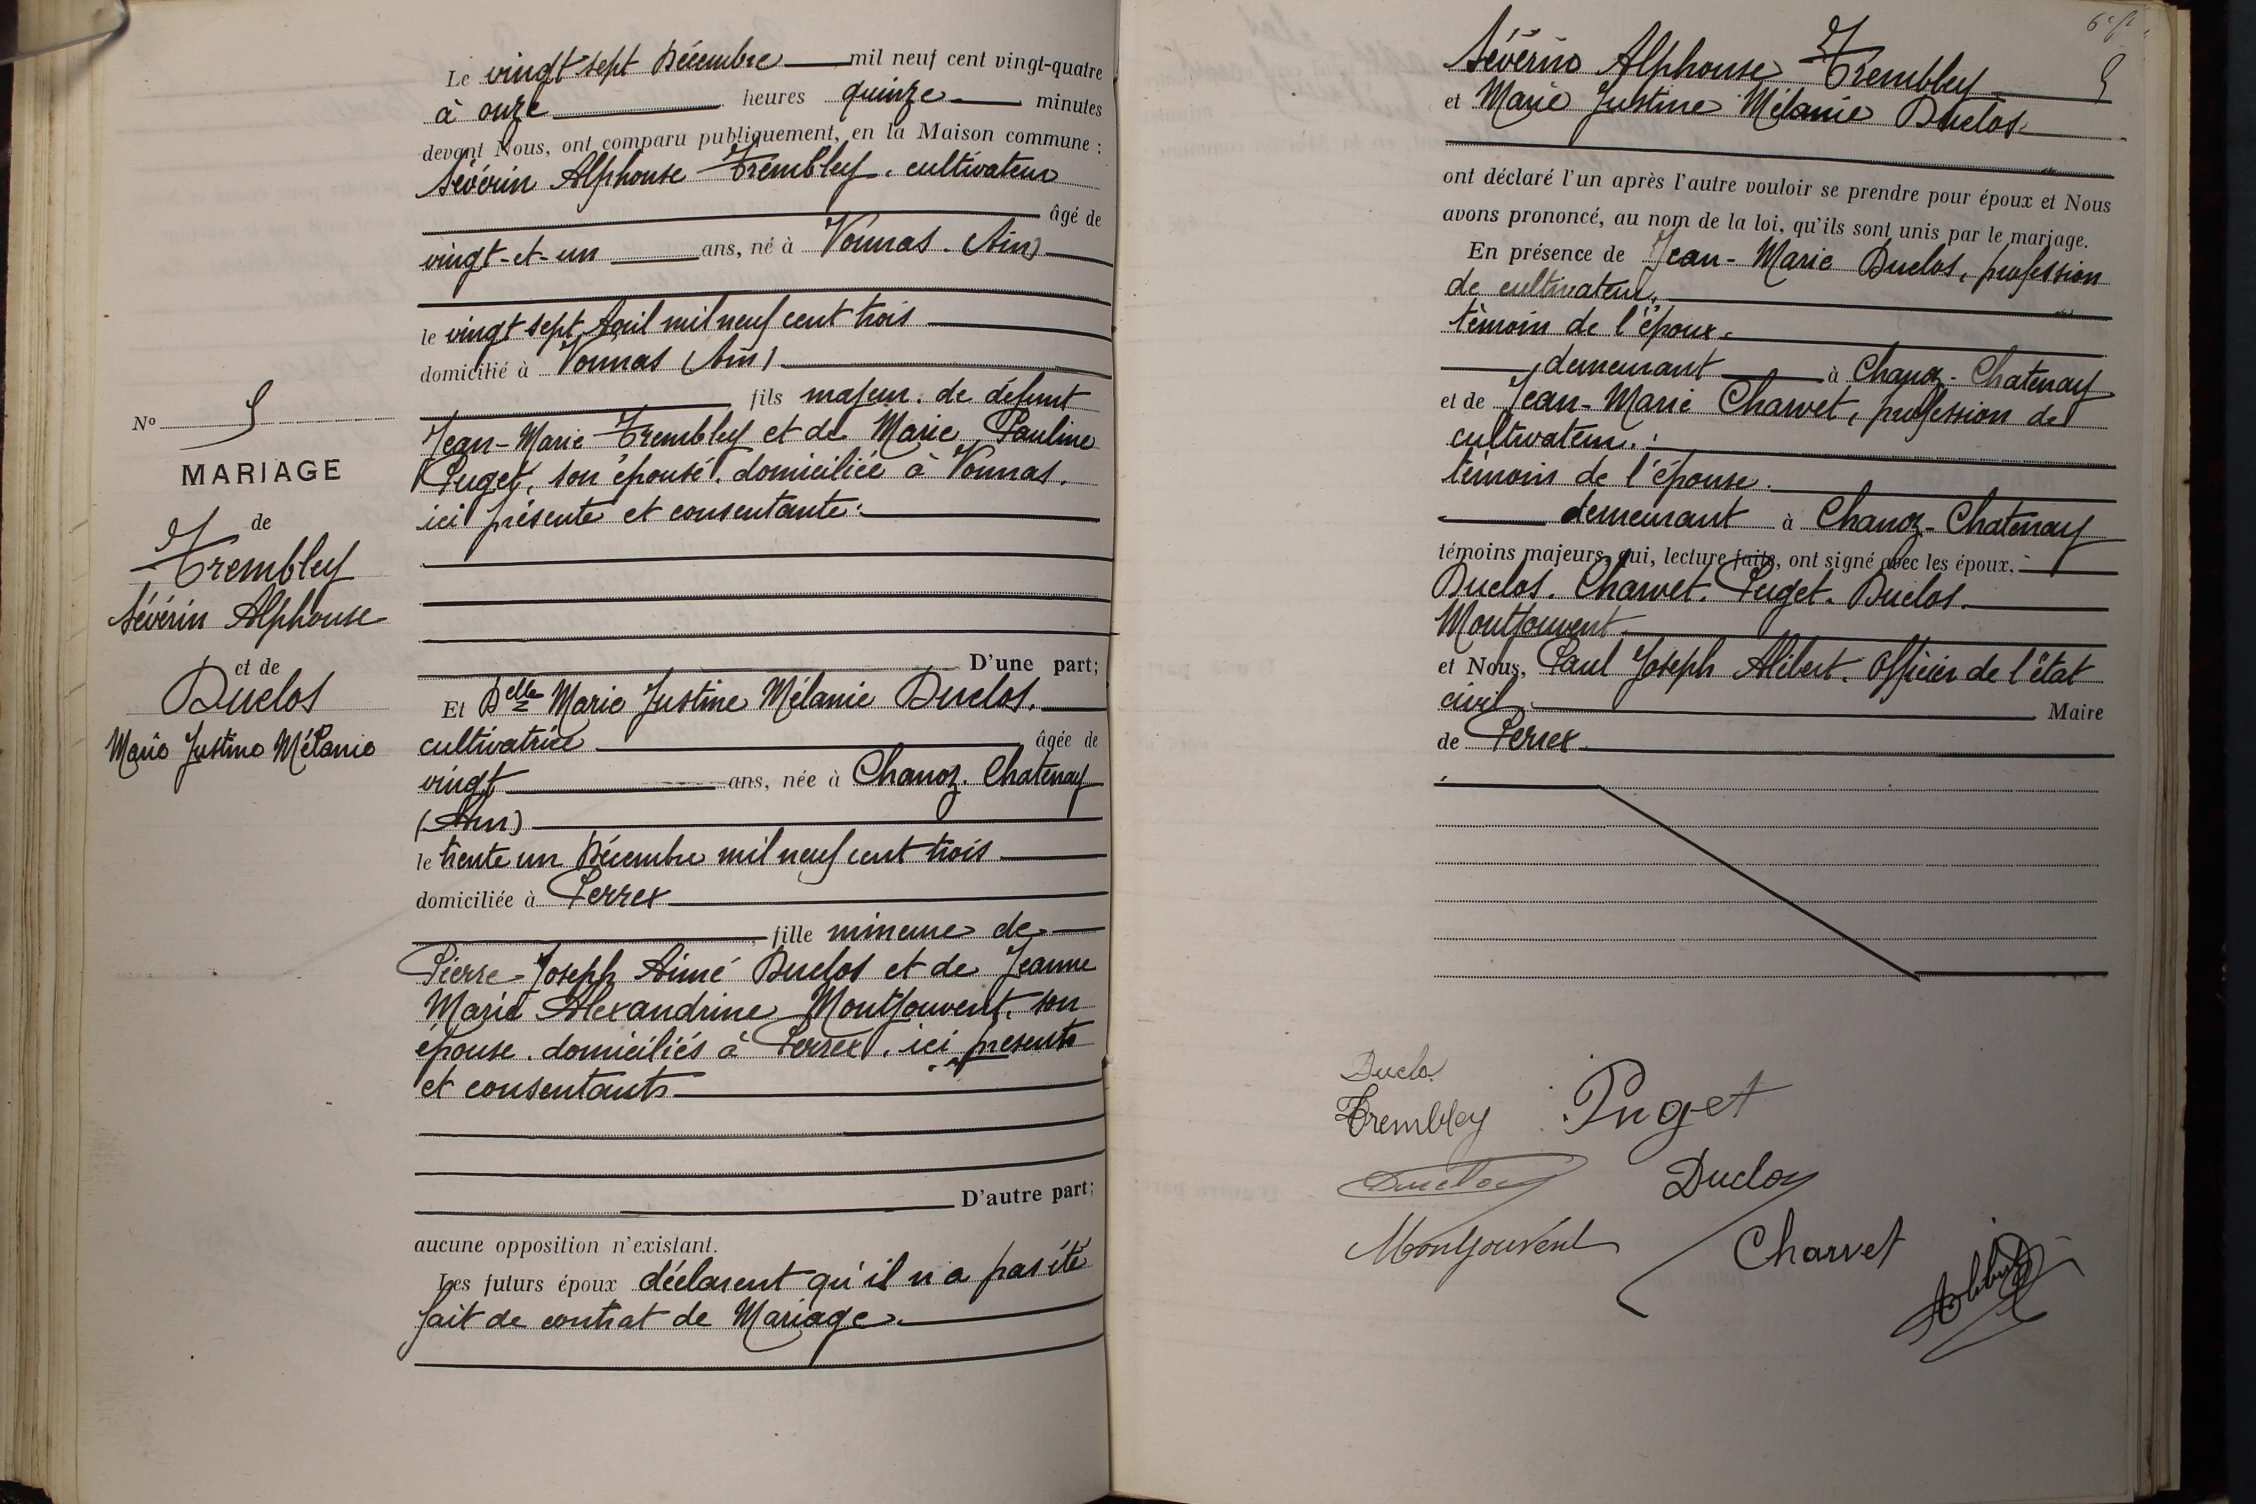 Le vingt sept Décembre mil neuf cent vingt-quatre
à onze heures quinze minutes
devant Nous, ont comparu publiquement, en la Maison commune :
Sévérin Alphonse Trembley. cultivateur
âgé de
vingt-et-un ans, né à Vonnas. (Ain)
le vingt sept Avril mil neuf cent trois
domicilié à Vonnas (Ain)
fils majeur. de défunt
Jean-Marie Trembley et de Marie Pauline
Puget, son épouse. domiciliée à Vonnas.
ici présente et consentante.
D'une part;
Et Delle Marie Justine Mélanie Duclos.
cultivatrice âgée de
vingt ans, née à Chanoz. Chatenay
(Ain)
le trente un Décembre mil neuf cent trois
domiciliée à Perrex
fille mineure de
Pierre-Joseph Aimé Duclos et de Jeanne
Marie Alexandrine Montjouvent, son
épouse. domiciliés à Perrex. ici présents
et consentants
D'autre part;
aucune opposition n'existant.
Les futurs époux déclarent qu'il n'a pas été
fait de contrat de Mariage.
No
MARIAGE
de
Trembley
Sévérin Alphonse
et de
Duclos
Marie Justine Mélanie
Sévérin Alphonse Trembley
et Marie Justine Mélanie Duclos.
ont déclaré l'un après l'autre vouloir se prendre pour époux et Nous
avons prononcé, au nom de la loi, qu'ils sont unis par le mariage.
En présence de Jean-Marie Duclos, profession
de cultivateur,
témoin de l'époux.
demeurant à Chanoz-Chatenay
et de Jean-Marie Charvet, profession de
cultivateur.
témoin de l'épouse.
demeurant à Chanoz-Chatenay
témoins majeurs, qui, lecture faite, ont signé avec les époux.
Duclos. Charvet. Puget. Duclos.
Montjouvent
et Nous, Paul Joseph Alibert. Officier de l'état
civil Maire
de Perrex
Duclos
Trembley Puget
Duclos Duclos
Montjouvent Charvet
Alibert